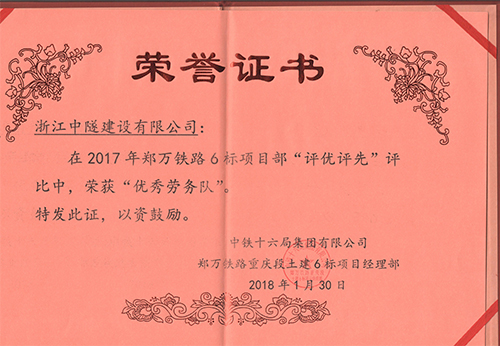 荣誉证书
浙江中隧建设有限公司：
在2017年郑万铁路6标项目部“评优评先”评
比中，荣获“优秀劳务队”。
特发此证，以资鼓励。
中铁十六局集团有限公司
郑万铁路重庆段土建6标项目经理部
2018年1月30日